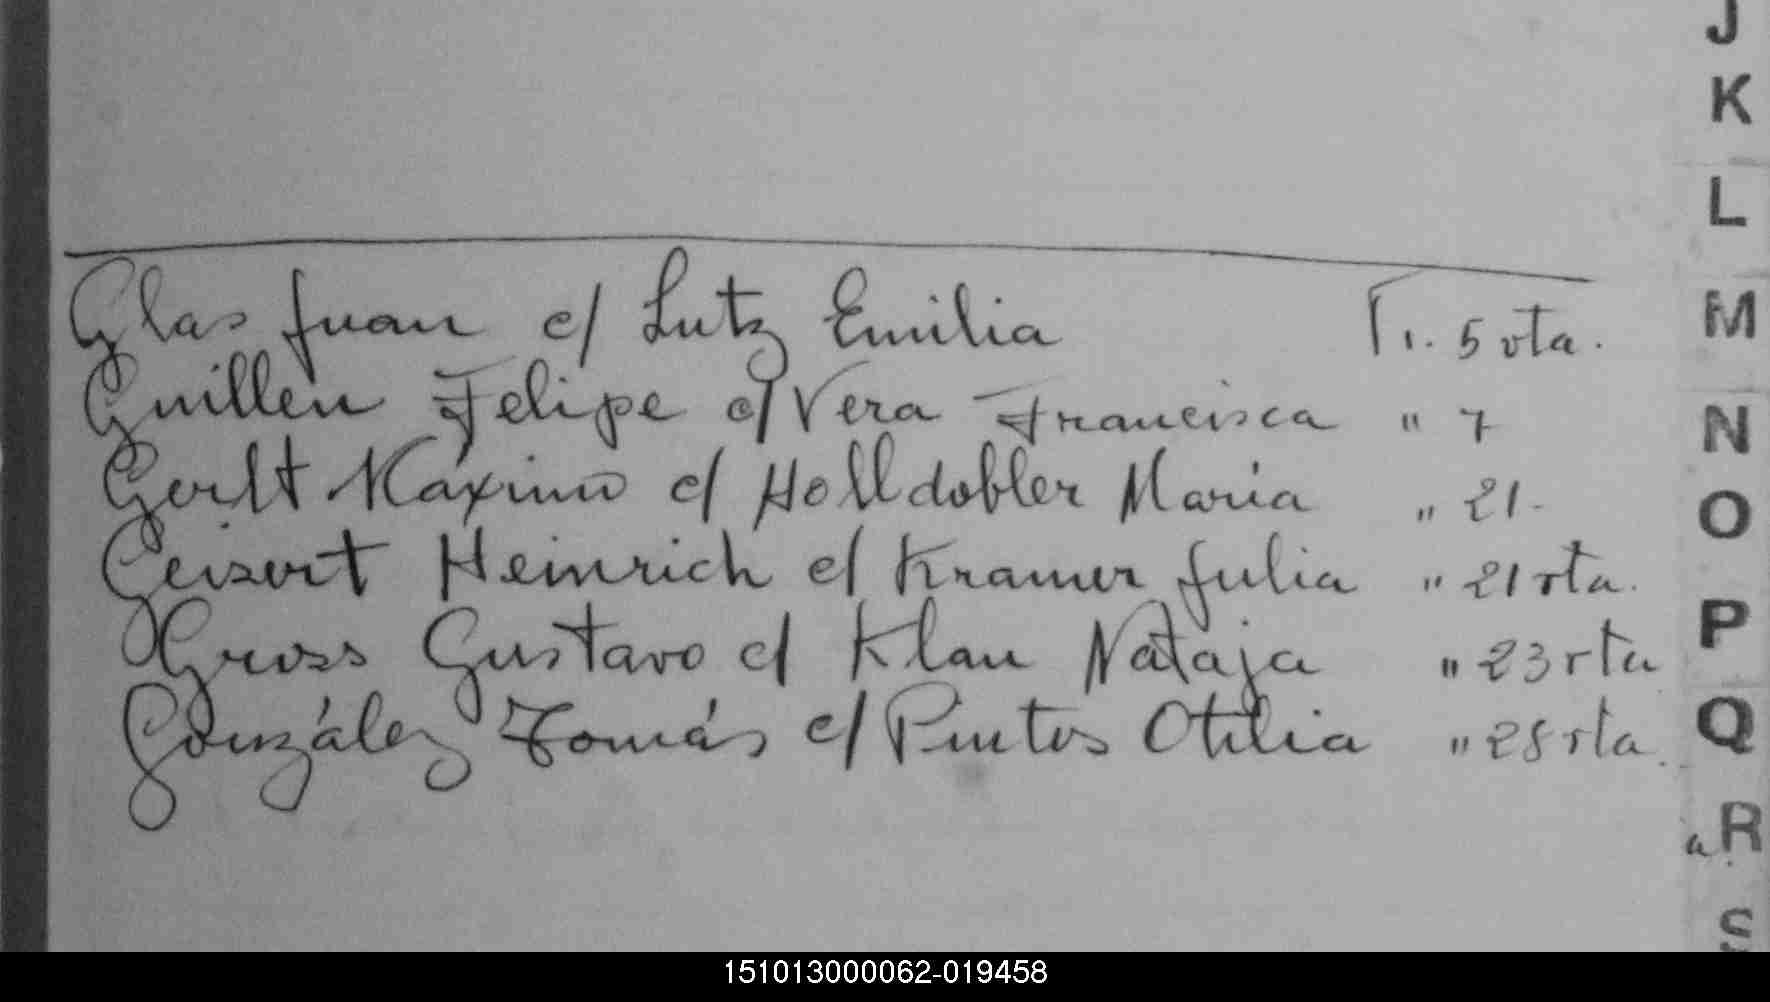 J
K
L
M
N
O
P
Q
R
S
Glas Juan c/ Lutz Emilia T 1. 5 vta.
Guillen Felipe c/ Vera Francisca " 7
Gerlt Máximo c/ Holldobler María " 21-
Geisert Heinrich c/ Kramer Julia " 21 vta.
Gross Gustavo c/ Klan Nataja " 23 vta
González Tomás c/ Pintos Otilia " 28 vta.
151013000062-019458